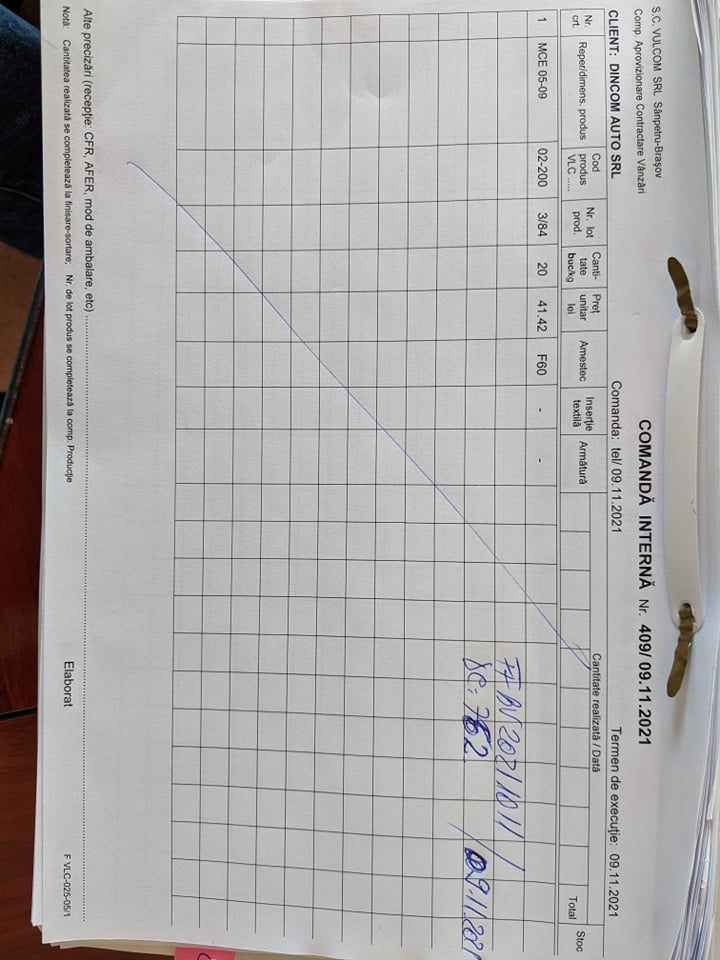 S.C. VULCOM SRL Sânpetru-Braşov
Comp. Aprovizionare Contractare Vânzări
COMANDĂ INTERNĂ Nr. 409/ 09.11.2021
CLIENT: DINCOM AUTO SRL Comanda: tel/ 09.11.2021 Termen de execuţie: 09.11.2021
Nr. crt. Reper/dimens. produs Cod produs VLC ..... Nr. lot prod. Canti-tate buc/kg Preţ unitar lei Amestec Inserţie textilă Armătură Cantitate realizată / Dată Total Stoc
1 MCE 05-09 02-200 3/84 20 41.42 F60 - -
FF BV 2021/1011 /
DC: 762 / 09.11.2021
Alte precizări (recepţie: CFR, AFER, mod de ambalare, etc) ..........
Notă: Cantitatea realizată se completează la finisare-sortare; Nr. de lot produs se completează la comp. Producţie Elaborat F VLC-025-05/1